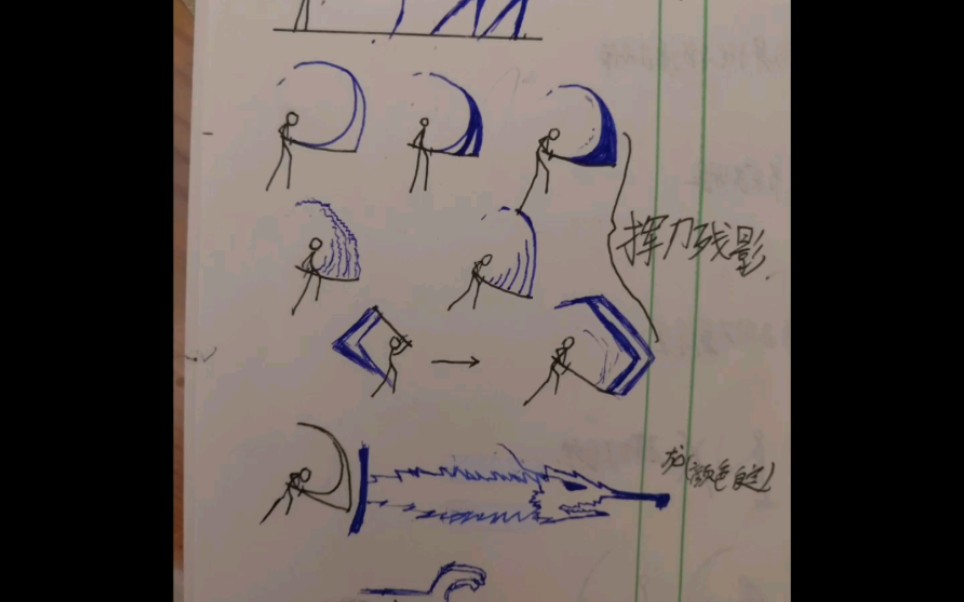 挥刀残影
龙(颜色自定)